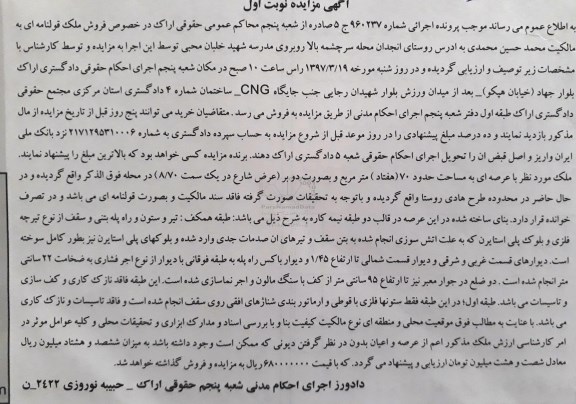 آگهی مزایده نوبت اول
به اطلاع عموم می رساند موجب پرونده اجرائی شماره ۹۶۰۲۳۷ ج ۵ صادره از شعبه پنجم محاکم عمومی حقوقی اراک در خصوص فروش ملک قولنامه ای به
مالکیت محمد حسین محمدی به ادرس روستای انجدان محله سرچشمه بالا روبروی مدرسه شهید خلبان محبی توسط این اجرا به مزایده و توسط کارشناس با
مشخصات زیر توصیف و ارزیابی گردیده و در روز شنبه مورخه ۱۳۹۷/۳/۱۹ راس ساعت ۱۰ صبح در مکان شعبه پنجم اجرای احکام حقوقی دادگستری اراک
بلوار جهاد (خیابان هپکو)_ بعد از میدان ورزش بلوار شهیدان رجایی جنب جایگاه CNG_ ساختمان شماره ۴ دادگستری استان مرکزی مجتمع حقوقی
دادگستری اراک طبقه اول دفتر شعبه پنجم اجرای احکام مدنی از طریق مزایده به فروش می رسد. متقاضیان خرید می توانند پنج روز قبل از تاریخ مزایده از مال
مذکور بازدید نمایند و ده درصد مبلغ پیشنهادی را در روز موعد قبل از شروع مزایده به حساب سپرده دادگستری به شماره ۲۱۷۱۲۹۵۳۱۰۰۰۶ نزد بانک ملی
ایران واریز و اصل قبض ان را تحویل اجرای احکام حقوقی شعبه ۵ دادگستری اراک دهند. برنده مزایده کسی خواهد بود که بالاترین مبلغ را پیشنهاد نمایند.
ملک مورد نظر با عرصه ای به مساحت حدود ۷۰ (هفتاد) متر مربع و بصورت دو بر (عرض شارع در یک سمت ۸/۷۰) در محله فوق الذکر واقع گردیده و در
حال حاضر در محدوده طرح هادی روستا واقع گردیده و باتوجه به تحقیقات صورت گرفته فاقد سند مالکیت و بصورت قولنامه ای می باشد و در تصرف
خوانده قرار دارد. بنای ساخته شده در این عرصه در قالب دو طبقه نیمه کاره به شرح ذیل می باشد: طبقه همکف : تیر و ستون و راه پله بتنی و سقف از نوع تیرچه
فلزی و بلوک پلی استایرن که به علت اتش سوزی انجام شده به بتن سقف و تیرهای ان صدمات جدی وارد شده و بلوکهای پلی استایرن نیز بطور کامل سوخته
است. دیوارهای قسمت غربی و شرقی و دیوار قسمت شمالی تا ارتفاع ۱/۴۵ و دیوار باکس راه پله به طبقه فوقانی با دیوار از نوع اجر فشاری به ضخامت ۲۲ سانتی
متر انجام شده است . دو ضلع در جوار معبر نیز تا ارتفاع ۹۵ سانتی متر از کف با سنگ مالون و اجر نماسازی شده است. این طبقه فاقد نازک کاری و کف سازی
و تاسیسات می باشد. طبقه اول: در این طبقه فقط ستونها فلزی با قوطی و ارماتور بندی شناژهای افقی روی سقف انجام شده است و فاقد تاسیسات و نازک کاری
می باشد. با عنایت به مطالب فوق موقعیت محلی و منطقه ای نوع مالکیت کیفیت بنا و با بررسی اسناد و مدارک ابرازی و تحقیقات محلی و کلیه عوامل موثر در
امر کارشناسی ارزش ملک مذکور اعم از عرصه و اعیان بدون در نظر گرفتن دیونی که ممکن است وجود داشته باشد به میزان ششصد و هشتاد میلیون ریال
معادل شصت و هشت میلیون تومان ارزیابی و پیشنهاد می گردد. که با قیمت ۶۸۰۰۰۰۰۰۰ ریال به مزایده و فروش گذاشته خواهد شد.
دادورز اجرای احکام مدنی شعبه پنجم حقوقی اراک _ حبیبه نوروزی ۲۴۲۲_ن